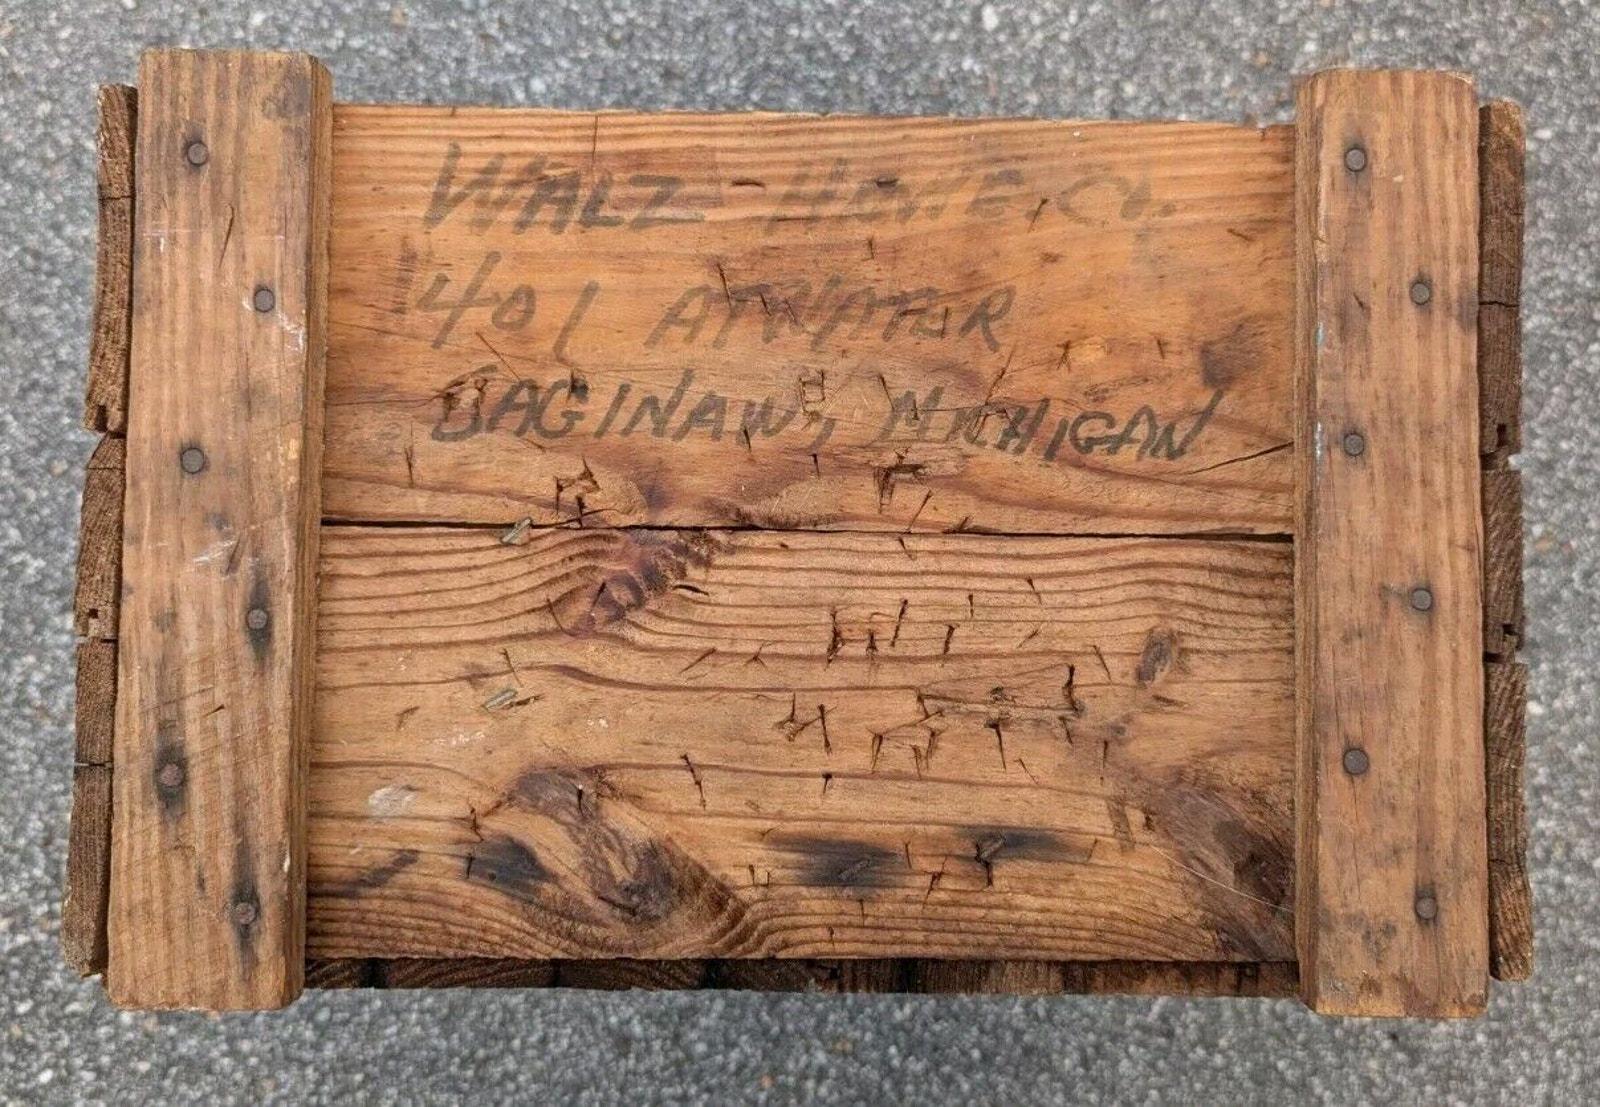 WALZ - HOWE, CO.
401 ATWATER
SAGINAW, MICHIGAN